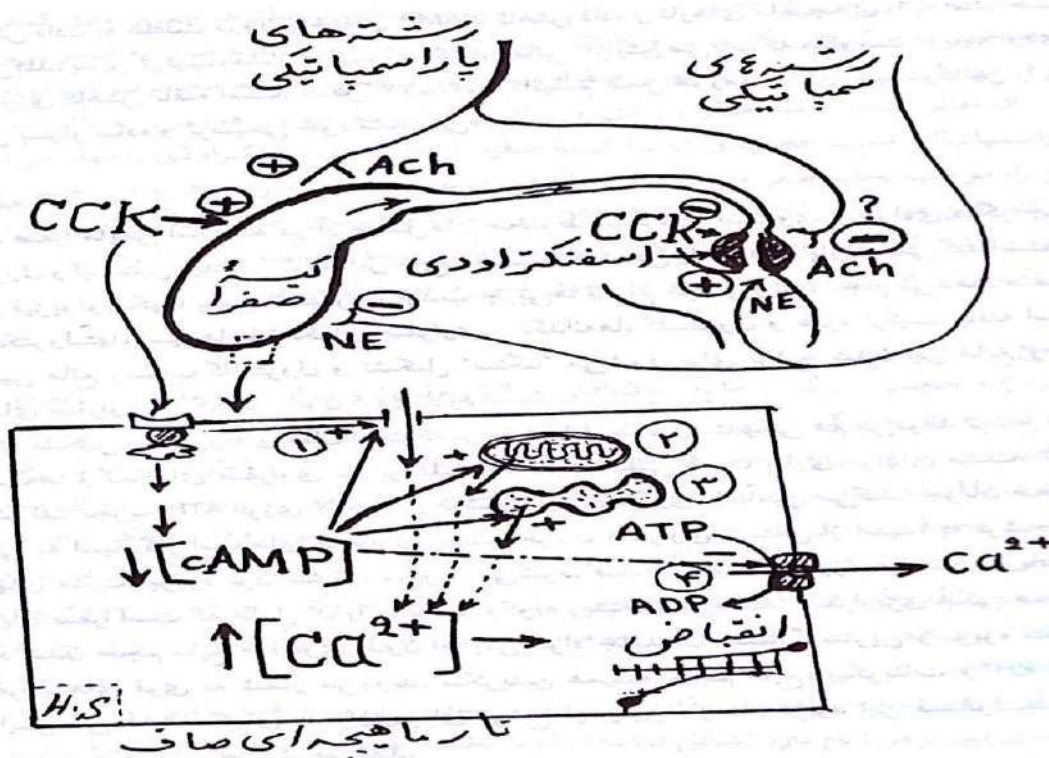 رشته های
پاراسمپاتیکی
رشته های
سمپاتیکی
+
Ach
CCK
+
کیسهٔ
صفرا
CCK
-
اسفنکتر اودی
+
NE
?
-
Ach
-
NE
۱ +
+
۲
+
۳
ATP
-
۴
ADP
Ca²⁺
↓[cAMP]
↑[Ca²⁺] →
انقباض
H.S
تار ماهیچه ای صاف